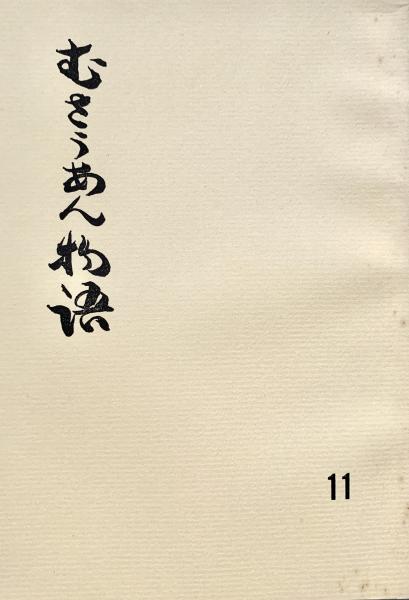 むさうあん物語
11